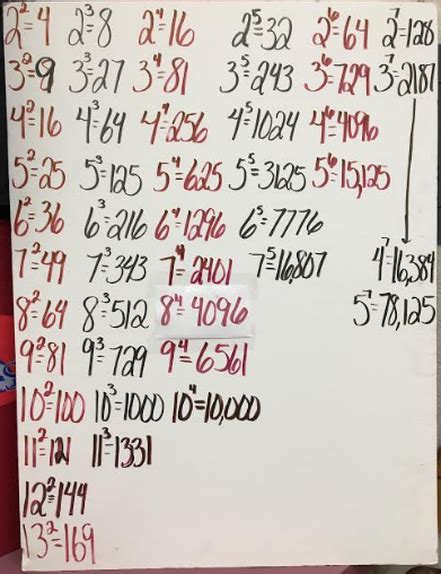 2²=4 2³=8 2⁴=16 2⁵=32 2⁶=64 2⁷=128
3²=9 3³=27 3⁴=81 3⁵=243 3⁶=729 3⁷=2187
4²=16 4³=64 4⁴=256 4⁵=1024 4⁶=4096
5²=25 5³=125 5⁴=625 5⁵=3125 5⁶=15,125
6²=36 6³=216 6⁴=1296 6⁵=7776
7²=49 7³=343 7⁴=2401 7⁵=16,807 4⁷=16,384
8²=64 8³=512 8⁴=4096 5⁷=78,125
9²=81 9³=729 9⁴=6561
10²=100 10³=1000 10⁴=10,000
11²=121 11³=1331
12²=144
13²=169